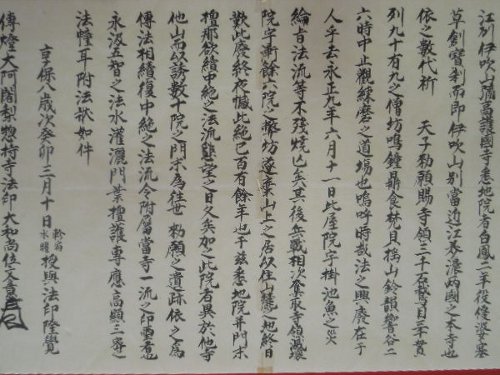 江州伊吹山護國寺悉地院者白鳳二年役優婆塞
草創嘗剃而即伊吹山別當近江美濃兩國之本寺也
依之數代祈 天子勅願賜寺領三千石鵞目三千貫
列九十有九之僧坊鳴鐘鼎食梵貝梓山鈴韻響谷二
六時中止觀練磨之道場也嗚呼時哉法之興廢在于
人乎去永正九年六月十一此屋院宇掛池魚之災
綸旨法流等不殘燒亡矣其後兵戰相次奪取寺領減壞
院宇漸餘六院之弊坊遂去山上之居以住山麓之地終日
歎此廢終夜憾此絶已百有餘年也于茲悉地院并門末
檀那欲續中絶之法流懇望之日久矣加之此院者異於他寺
他山而以誘數十院之門末為往世勅願之遺跡依之為
傳法相續復中絶之法流令附屬當寺一流之印璽者也
永汲五智之法水灌濯門葉檀護專應高顯三密之
法幢耳附法狀如件
享保八歳次癸卯三月十日 授與法印隆覺
傳燈大阿闍梨惣持寺法印大和尚位